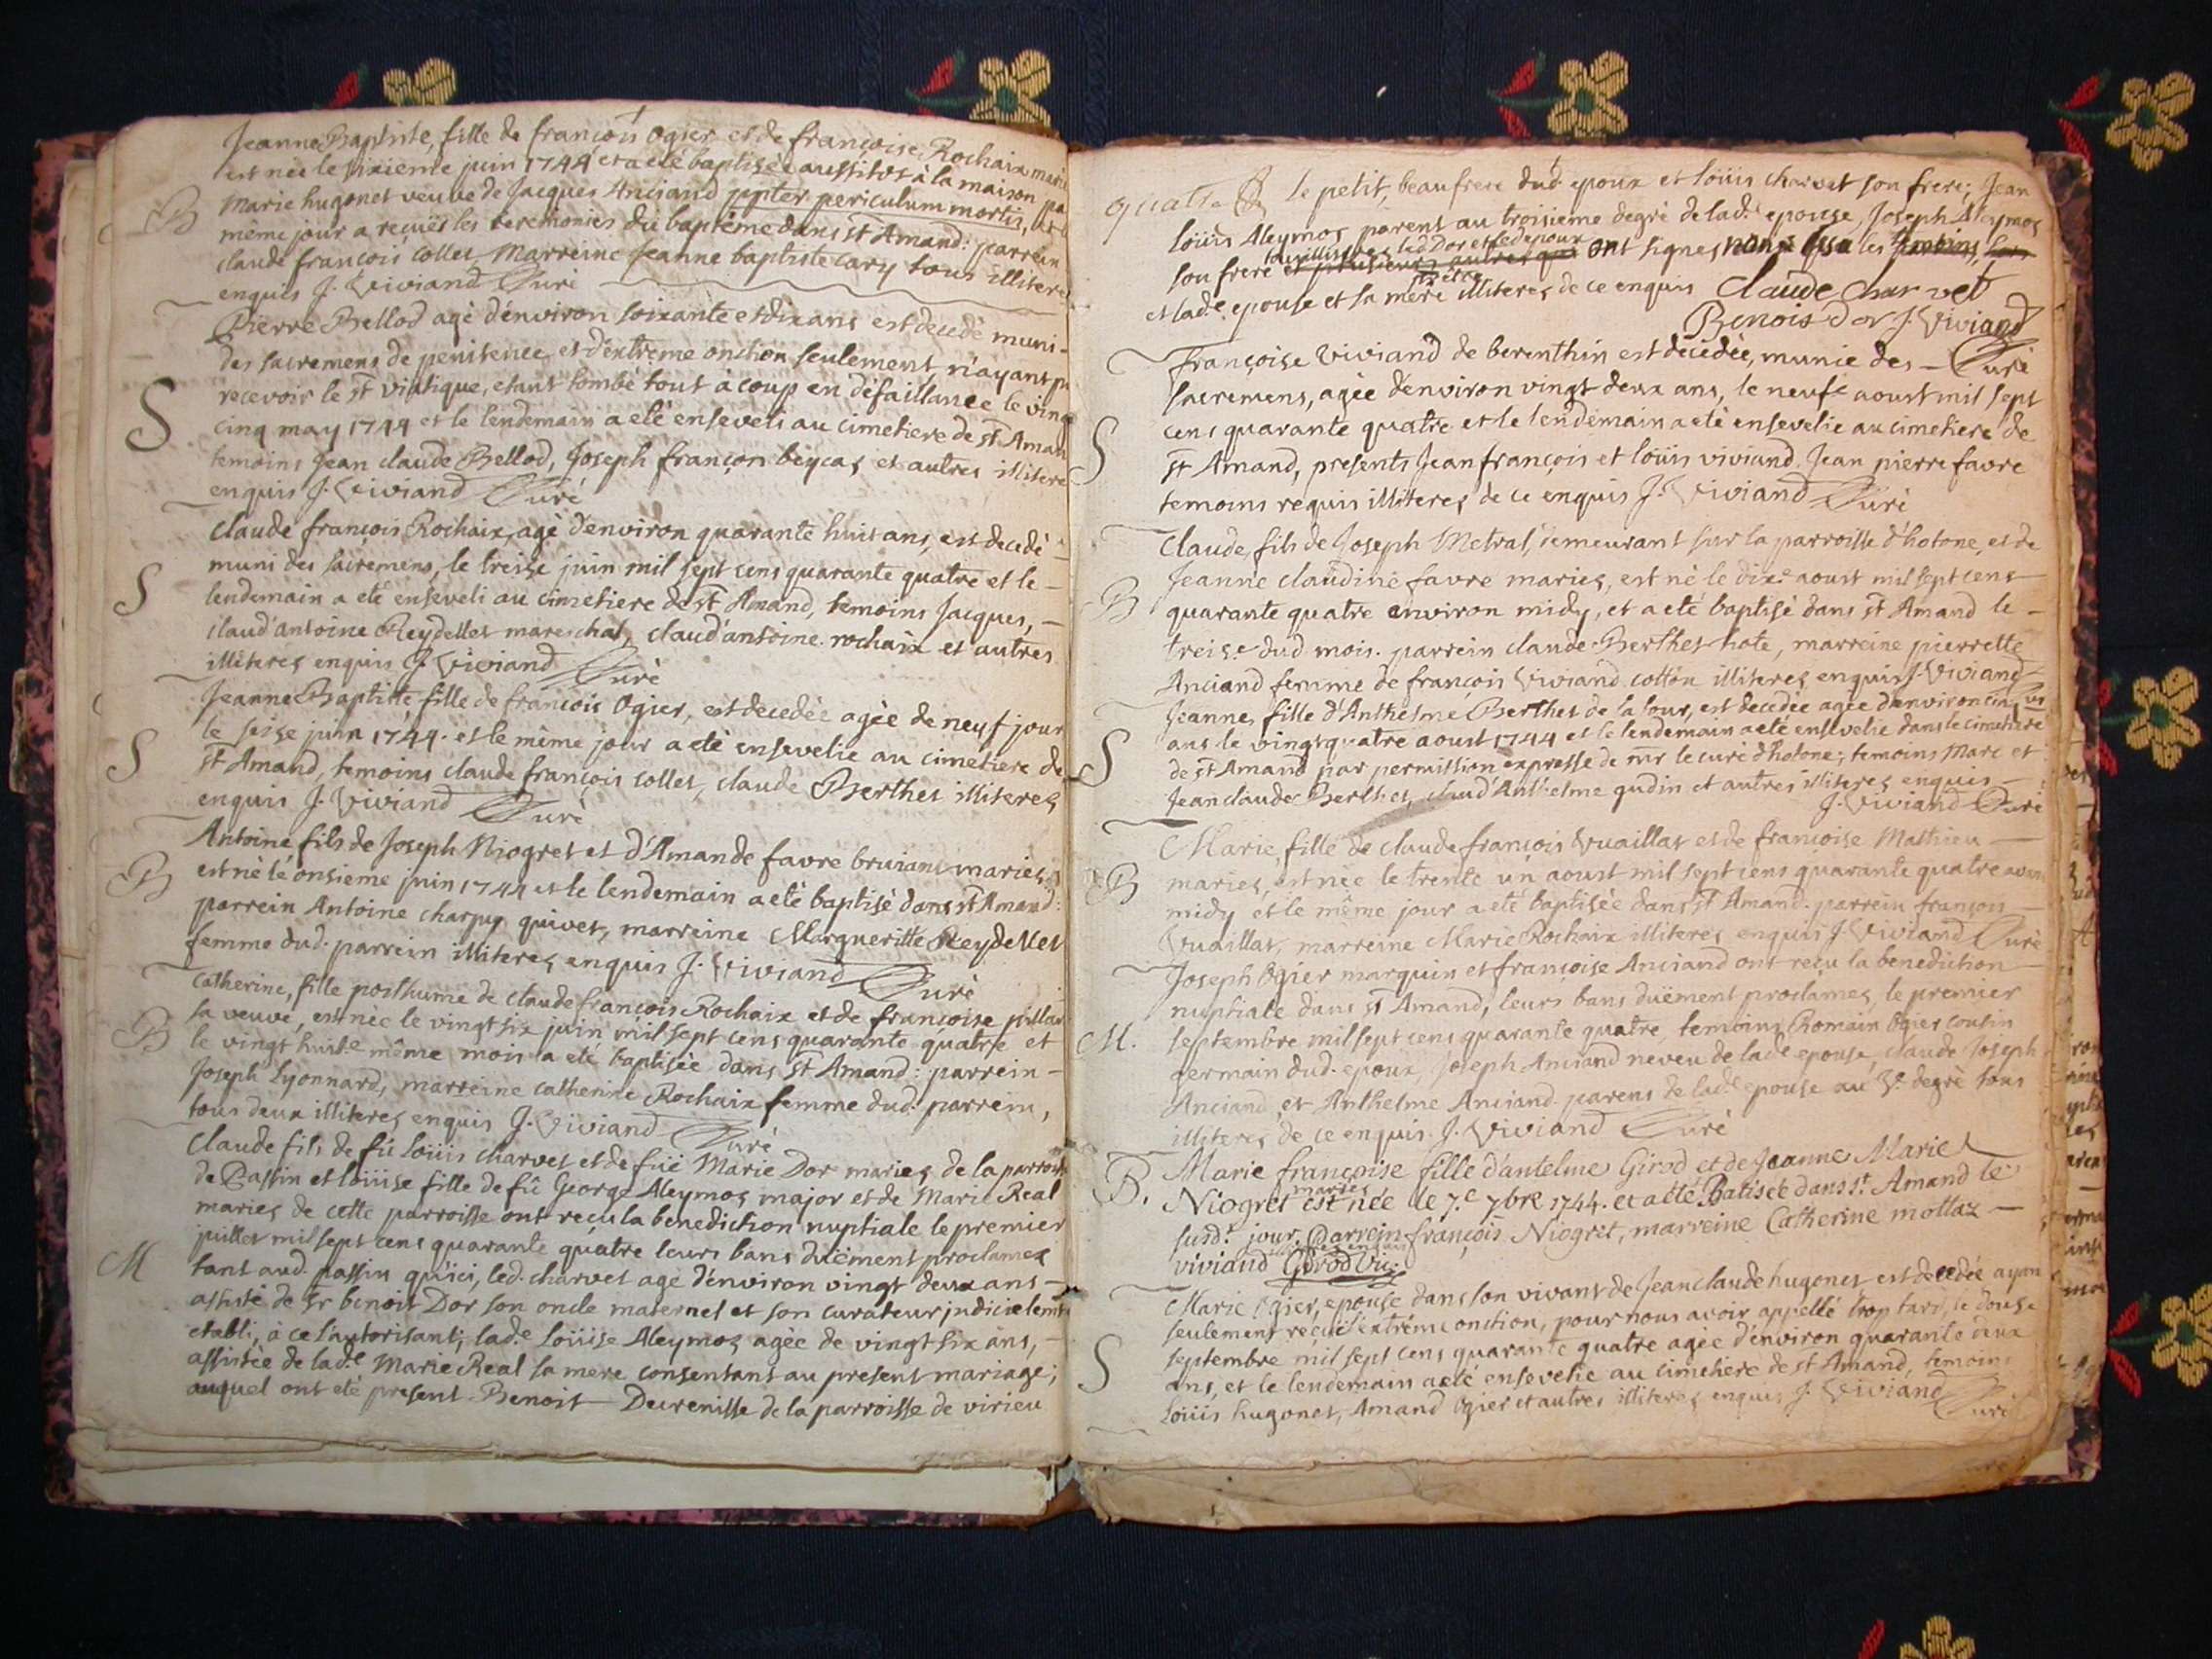 Jeanne Baptiste, fille de françois Ogier et de françoise Rochaix mariés
est née le sixième juin 1744 et a eté baptisée aussitot à la maison par
B
Marie hugonet veuve de Jacques Anciand propter periculum mortis,
même jour a reçuës les ceremonies du baptême dans st Amand: parrein
claude françois collet, Marreine Jeanne baptiste cary tous illiteres
enquis J. Viviand Curé
Pierre Bellod agè d'environ soixante et dix ans est decedè muni-
des sacremens de penitence et d'extreme onction seulement n'ayant pu
S
recevoir le st viatique, etant tombè tout à coup en défaillance le vingt
cinq may 1744 et le lendemain a etè enseveli au cimetiere de st Amand
temoins Jean claude Bellod, Joseph françon beycas et autres illiteres
enquis J. Viviand Curé
claude françois Rochaix, agè d'environ quarante huit ans, est decedè -
S
muni des sacremens, le treise juin mil sept cens quarante quatre et le -
lendemain a etè enseveli au cimetiere de st Amand, temoins Jacques, -
claud'antoine Reydellet mareschal, claud'antoine rochaix et autres
illiteres enquis J. Viviand Curé
Jeanne Baptitte fille de françois Ogier, est decedée agèe de neuf jour
S
le seise juin 1744. et le même jour a eté ensevelie au cimetiere de
st Amand, temoins claude françois collet, claude Berthet illiteres
enquis J. Viviand Curé
Antoine fils de Joseph Niogret et d'Amande favre bruiant mariés,
B
est nè le onsieme juin 1744 et le lendemain a eté baptisè dans st Amand:
parrein Antoine charpy quivet, marreine Margueritte Reydellet
femme dud. parrein illiteres enquis J. Viviand Curè
Catherine, fille posthume de claude françois Rochaix et de françoise pillat
B
sa veuve, est née le vingt six juin mil sept cens quarante quatre et
le vingt huit.e même mois a eté baptisèe dans st Amand: parrein -
Joseph Lyonnard, marreine catherine Rochaix femme dud. parrein,
tous deux illiteres enquis J. Viviand Curé
Claude fils de fû Loüis charvet et de füe Marie Dor mariés de la parroisse
de Passin et loüise fille de fû George Aleymoz major et de Marie Real
mariés de cette parroisse ont reçu la benediction nuptiale le premier
juillet mil sept cens quarante quatre leurs bans duëment proclamez
M
tant aud. passin qu'ici, led. charvet agè d'environ vingt deux ans -
assistè de Sr benoit Dor son oncle maternel et son curateur judicielemt
etabli, à ce l'autorisant; lad.e Loüise Aleymoz agèe de vingt six ans, -
assistèe de lad.e Marie Real sa mere consentant au present mariage;
auquel ont eté present Benoit Decrenisse de la parroisse de virieu
le petit, beaufrere dud. epoux et loüis charvet son frere; Jean
Loüis Aleymoz parent au troisieme degrè de lad.e epouse, Joseph Aleymoz
led Dor et led epoux
son frere et plusieurs autres qui ont signes non les temoins,
et lad.e epouse et sa mere illiteres de ce enquis Claude Char vet
Benois dor J. Viviand
Curé
françoise Viviand de berenthin est decèdée, munie des -
S
sacremens, agèe d'environ vingt deux ans, le neuf.e aoust mil sept
cens quarante quatre et le lendemain a etè ensevelie au cimetiere de
st Amand, presents Jean françois et loüis viviand Jean pierre favre
temoins requis illiteres de ce enquis J. Viviand Curé
Claude, fils de Joseph Metral, demeurant sur la parroisse d'hotone, et de
Jeanne claudine favre mariés, est nè le dix.e aoust mil sept cens
B
quarante quatre environ midy, et a etè baptisé dans st Amand le -
treis.e dud mois. parrein claude Berthet hote, marreine pierrette
Anciand femme de françois Viviand cotton illiteres enquis J. Viviand
Curé
Jeanne, fille d'Anthelme Berthet de la lour, est decedée agée d'environ cinq
S
ans le vingt quatre aoust 1744 et le lendemain a eté ensevelie dans le cimetiere
de st Amand par permission expresse de mr le curè d'hotone; temoins Marc et
Jean claude Berthet, claud'Anthelme gudin et autres illiteres enquis -
J. Viviand Curé
Marie, fille de claude françois Vuaillat et de françoise Mathieu
B
mariés, est née le trente un aoust mil sept cens quarante quatre avant
midy et le même jour a etè baptisèe dans st Amand. parrein françois -
Vuaillat, marreine Marie Rochaix illiteres enquis J. Viviand Curé
Joseph Ogier marquin et françoise Anciand ont reçu la benediction
nuptiale dans st Amand, leurs bans duëment proclamés, le premier
M.
septembre mil sept cens quarante quatre, temoins Romain Ogier cousin
germain dud. epoux, Joseph Anciand neveu de lad.e epouse, claude Joseph
Anciand et Anthelme Anciand parens de lad.e epouse au 3.e degrè tous
illiteres de ce enquis. J. Viviand Curé
B.
Marie françoise fille d'antelme Girod et de Jeanne Marie
mariés
Niogret est née le 7.e 7bre 1744. et a été Batisée dans st. Amand le
susd.t jour. Parrein françois Niogret, marreine Catherine mottaz -
viviand Girod Vic.
Marie Ogier, epouse dans son vivant de Jean claude hugonet, est decedée ayan
seulement reçuë l'extrême onction, pour nous avoir appellé trop tard, le douse
S
septembre mil sept cens quarante quatre agée d'environ quarante deux
ans, et le lendemain a eté ensevelie au cimetiere de st Amand, temoins
Loüis hugonet, Amand Ogier et autres illiteres enquis J. Viviand
Curé